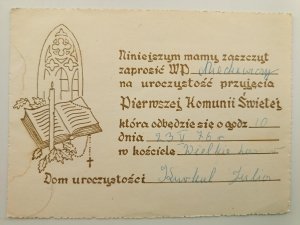 Niniejszym mamy zaszczyt
zaprosić WP
na uroczystość przyjęcia
Pierwszej Komunii Świętej
która odbędzie się o godz. 10
dnia 23 V 76 r
w kościele Wielkie
Dom uroczystości